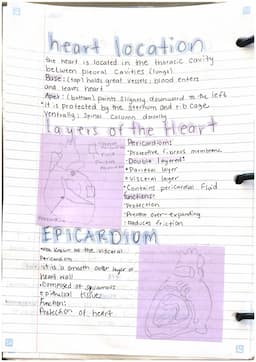 heart location
the heart is located in the thoracic cavity
between pleural cavities (lungs)
Base: (top) holds great vessels; blood enters
and leaves heart
Apex: (bottom) points slightly downward to the left
*it is protected by the sternum and rib cage
ventrally; spinal column dorsally
layers of the heart
Pericardium:
*Protective fibrous membrane
*Double layered:
*Parietal layer
*Visceral layer
*Contains pericardial fluid
functions:
*Protection
*Prevent over-expanding
*Reduces friction
EPICARDIUM
*also known as the visceral
Pericardium
*it is a smooth outer layer of
heart wall
*Composed of squamous
epithelial tissue
Function:
Protection of heart